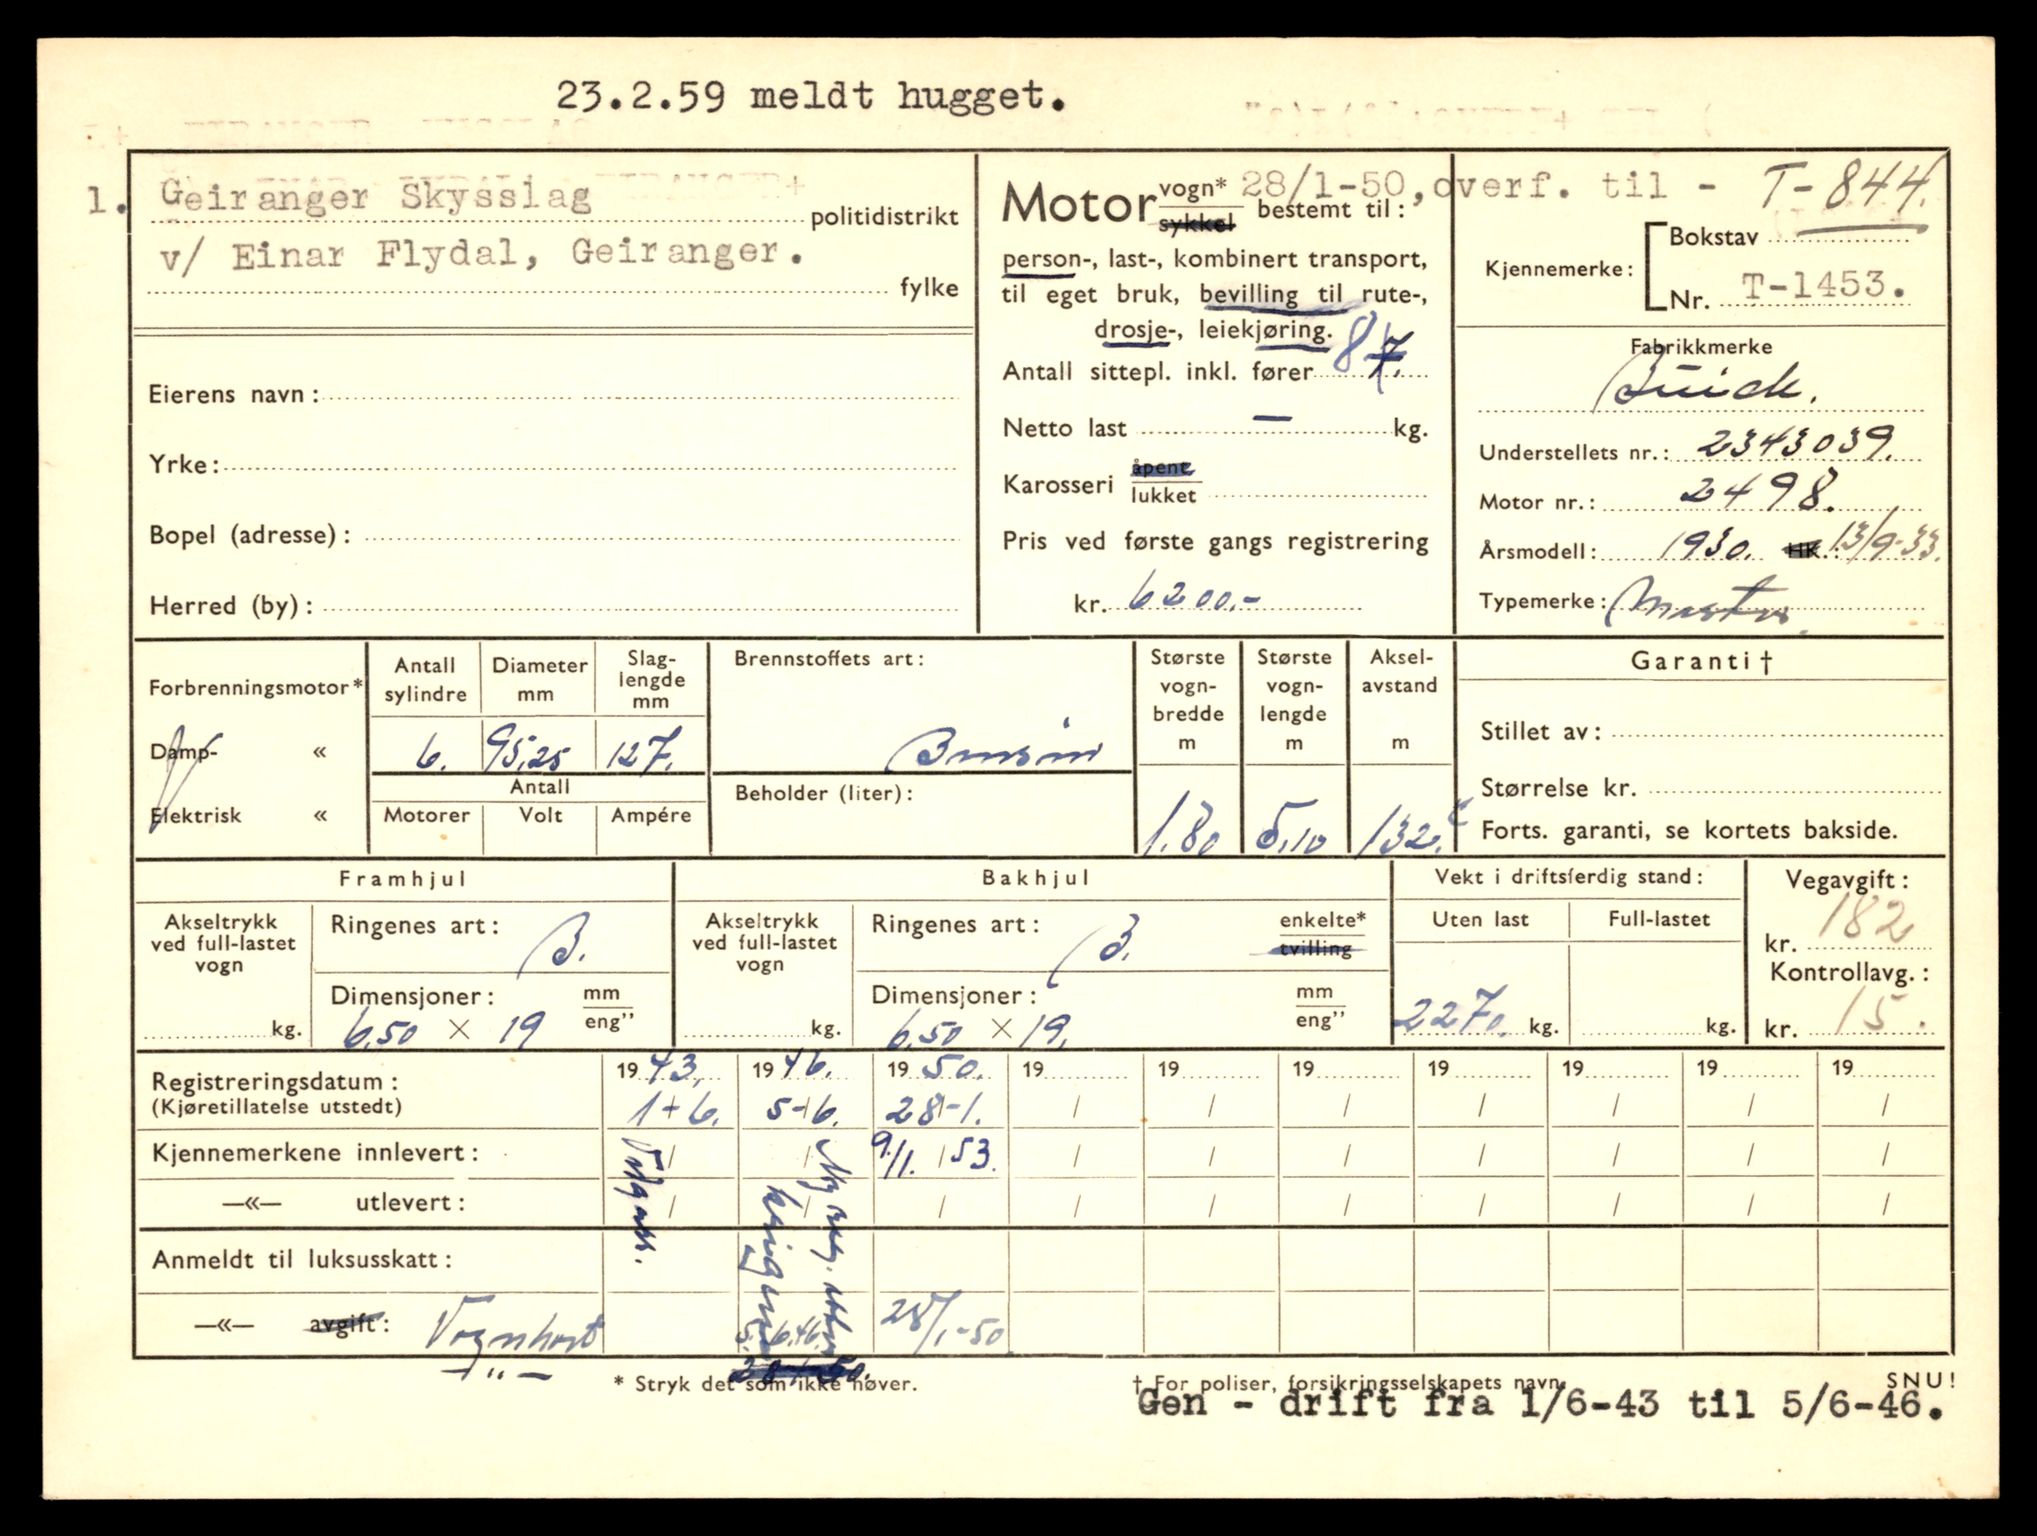 23.2.59 meldt hugget.
1. Geiranger Skysslag
politidistrikt
v/ Einar Flydal, Geiranger.
fylke
Eierens navn:
Yrke:
Bopel (adresse):
Herred (by):
Motor vogn* 28/1-50, overf. til - T-844.
sykkel bestemt til:
person-, last-, kombinert transport,
til eget bruk, bevilling til rute-,
drosje-, leiekjøring.
Antall sittepl. inkl. fører 8 7.
Netto last — kg.
Karosseri åpent
lukket
Pris ved første gangs registrering
kr. 6200.-
Kjennemerke: Bokstav
Nr. T-1453.
Fabrikkmerke
Buick.
Understellets nr.: 2343039.
Motor nr.: 2498.
Årsmodell: 1930. HK.: 13/9-33.
Typemerke: Master.
Forbrenningsmotor*
Damp- «
Elektrisk «
Antall sylindre
6.
Diameter mm
95,25
Slag-
lengde
mm
127.
Antall
Motorer Volt Ampére
Brennstoffets art:
Bensin
Beholder (liter):
Største
vogn-
bredde
m
1.80
Største
vogn-
lengde
m
5,10
Aksel-
avstand
m
132"
Garanti†
Stillet av:
Størrelse kr.
Forts. garanti, se kortets bakside.
Framhjul
Akseltrykk
ved full-lastet
vogn
kg.
Ringenes art: B.
Dimensjoner: mm
eng”
6.50 × 19
Bakhjul
Akseltrykk
ved full-lastet
vogn
kg.
Ringenes art: B. enkelte*
tvilling
Dimensjoner: mm
eng”
6.50 × 19.
Vekt i driftsferdig stand:
Uten last Full-lastet
2270. kg. kg.
Vegavgift:
kr. 182
Kontrollavg.:
kr. 15.
Registreringsdatum: 1943. 1946. 1950. 19 19 19 19 19 19 19
(Kjøretillatelse utstedt) 1/6. 5-6. 28-1. / / / / / / /
Kjennemerkene innlevert: / / 9/1. 53. / / / / / / /
—«— utlevert: / / / / / / / / / /
Anmeldt til luksusskatt:
—«— avgift: Vognkort 5.6.46. 28/1-50
—"—
* Stryk det som ikke høver.
† For poliser, forsikringsselskapets navn.
SNU!
Gen - drift fra 1/6-43 til 5/6-46.